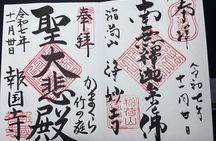 奉拝
南無釋迦牟尼佛
稲荷山 浄妙寺
令和七年
十一月廿日
奉拝
かまくら
竹の庭
聖大悲殿
令和七年
十一月廿日
報国寺